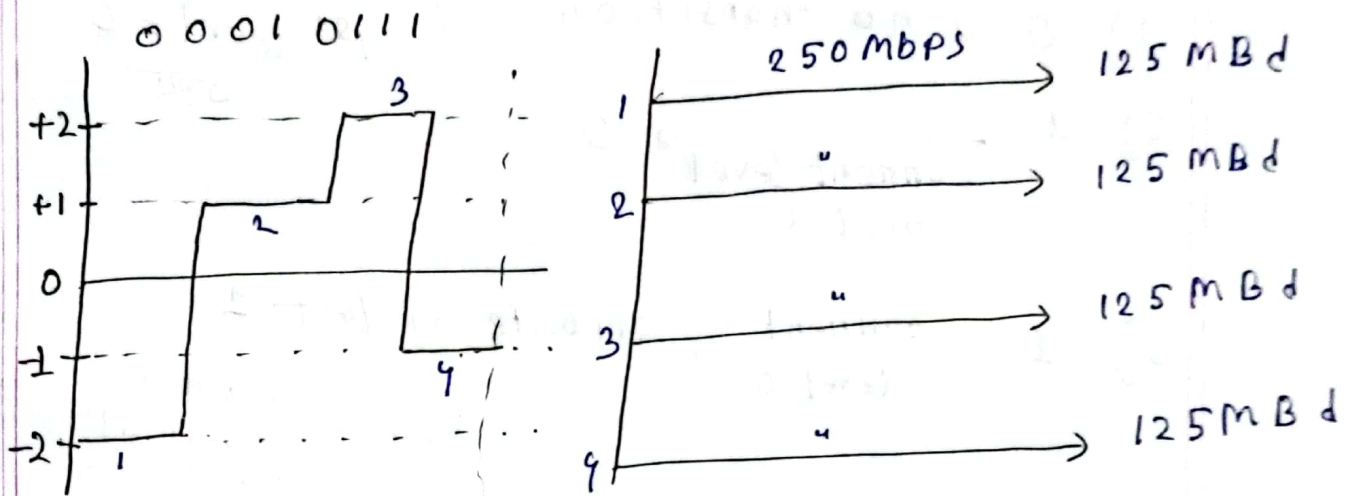 0 0 0 1 0 1 1 1
+2
+1
0
-1
-2
1
2
3
4
1 250 Mbps 125 MBd
2 " 125 MBd
3 " 125 MBd
4 " 125 MBd